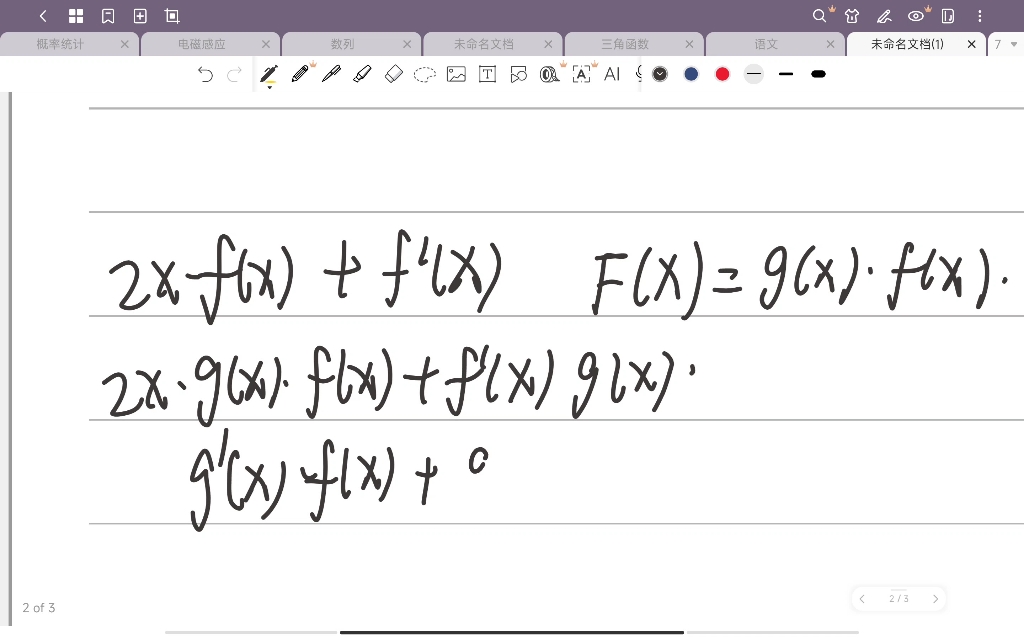 概率统计 电磁感应 数列 未命名文档 三角函数 语文 未命名文档(1) 7
T A AI
2x·f(x) + f'(x) F(x)=g(x)·f(x).
2x·g(x)·f(x)+f'(x)g(x)·
g'(x)·f(x)+
2 of 3
2/3